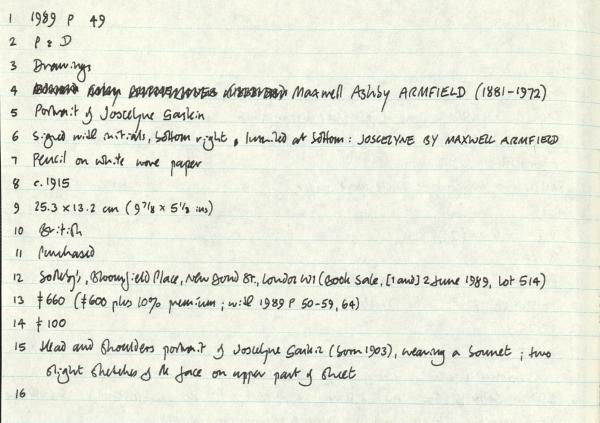 1 1989 P 49
2 P & D
3 Drawings
4 Maxwell Ashby ARMFIELD (1881-1972)
5 Portrait of Joscelyne Gaskin
6 Signed with initials, bottom right, inscribed at bottom: JOSCELYNE BY MAXWELL ARMFIELD
7 Pencil on white wove paper
8 c. 1915
9 25.3 x 13.2 cm (9 7/8 x 5 1/8 ins)
10 British
11 Purchased
12 Sotheby's, Bloomfield Place, New Bond St., London W1 (Book Sale, [1 and] 2 June 1989, Lot 514)
13 £660 (£600 plus 10% premium; with 1989 P 50-59, 64)
14 £100
15 Head and shoulders portrait of Joscelyne Gaskin (born 1903), wearing a bonnet; two
slight sketches of the face on upper part of sheet
16